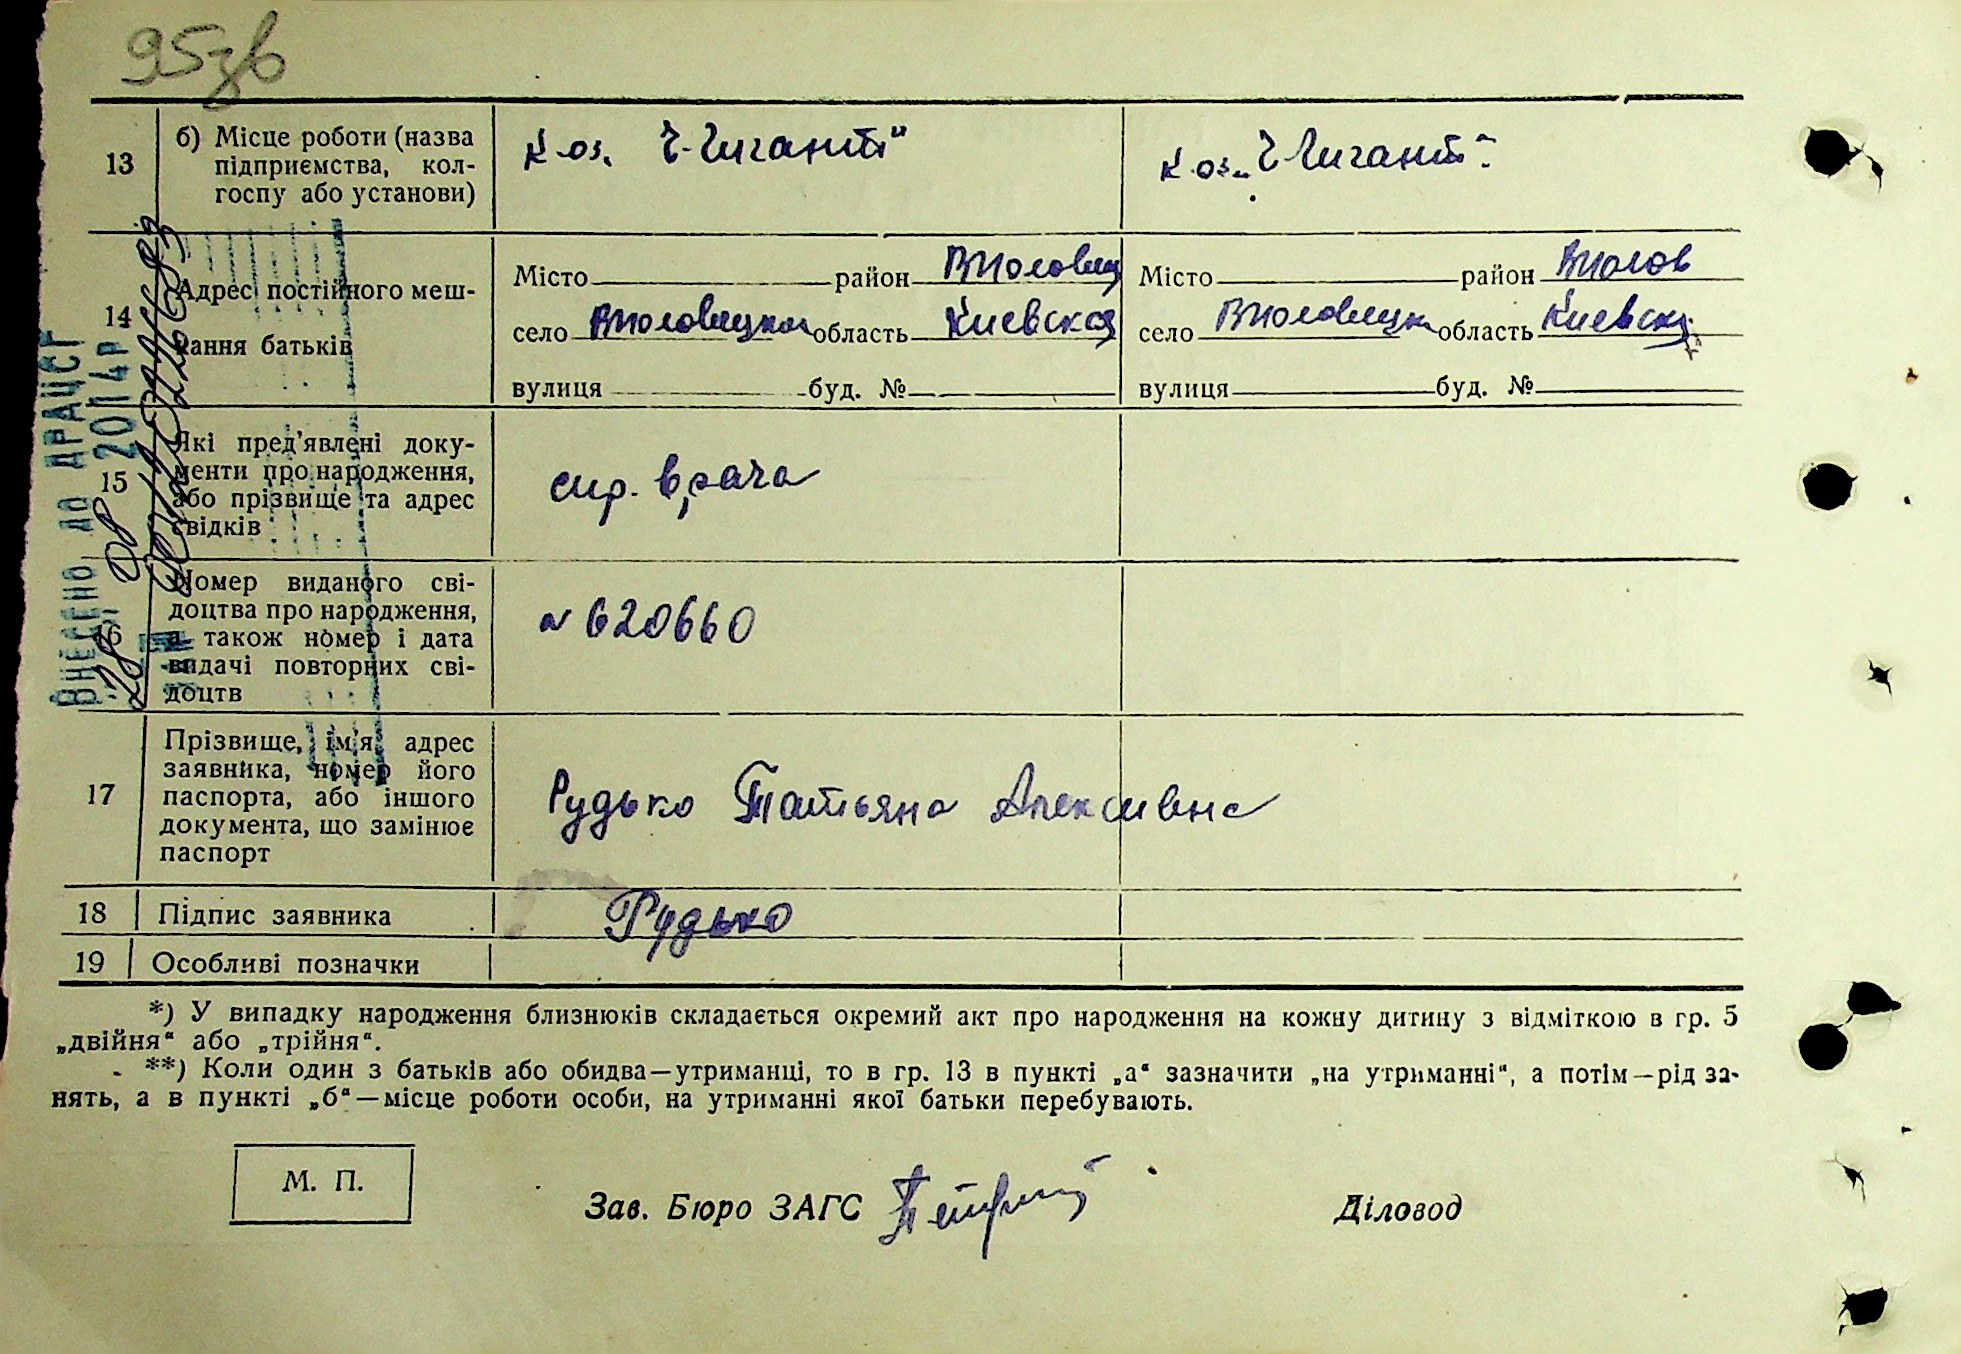 95зв
13
б) Місце роботи (назва
підприємства, кол-
госпу або установи)
К-оз. "Ч. Гигант"
К-оз. "Ч Гигант".
14
Адрес постійного меш-
кання батьків
Місто район
село область Киевская
вулиця буд. №
Місто район
село область
вулиця буд. №
15
Які пред'явлені доку-
менти про народження,
або прізвище та адрес
свідків
спр. врача
16
Номер виданого сві-
доцтва про народження,
а також номер і дата
видачі повторних сві-
доцтв
№ 620660
17
Прізвище, ім'я, адрес
заявника, номер його
паспорта, або іншого
документа, що замінює
паспорт
Рудько Татьяна Алексивна
18
Підпис заявника
Рудько
19
Особливі позначки
*) У випадку народження близнюків складається окремий акт про народження на кожну дитину з відміткою в гр. 5
„двійня“ або „трійня“.
**) Коли один з батьків або обидва—утриманці, то в гр. 13 в пункті „а“ зазначити „на утриманні“, а потім—рід за-
нять, а в пункті „б“—місце роботи особи, на утриманні якої батьки перебувають.
М. П.
Зав. Бюро ЗАГС
Діловод
ВНЕСЕНО ДО ДРАЦСГ
28 08 2014 р